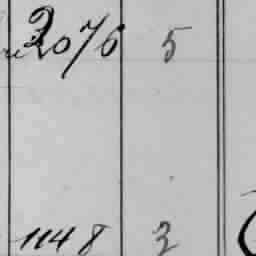 2076 5
1148 3